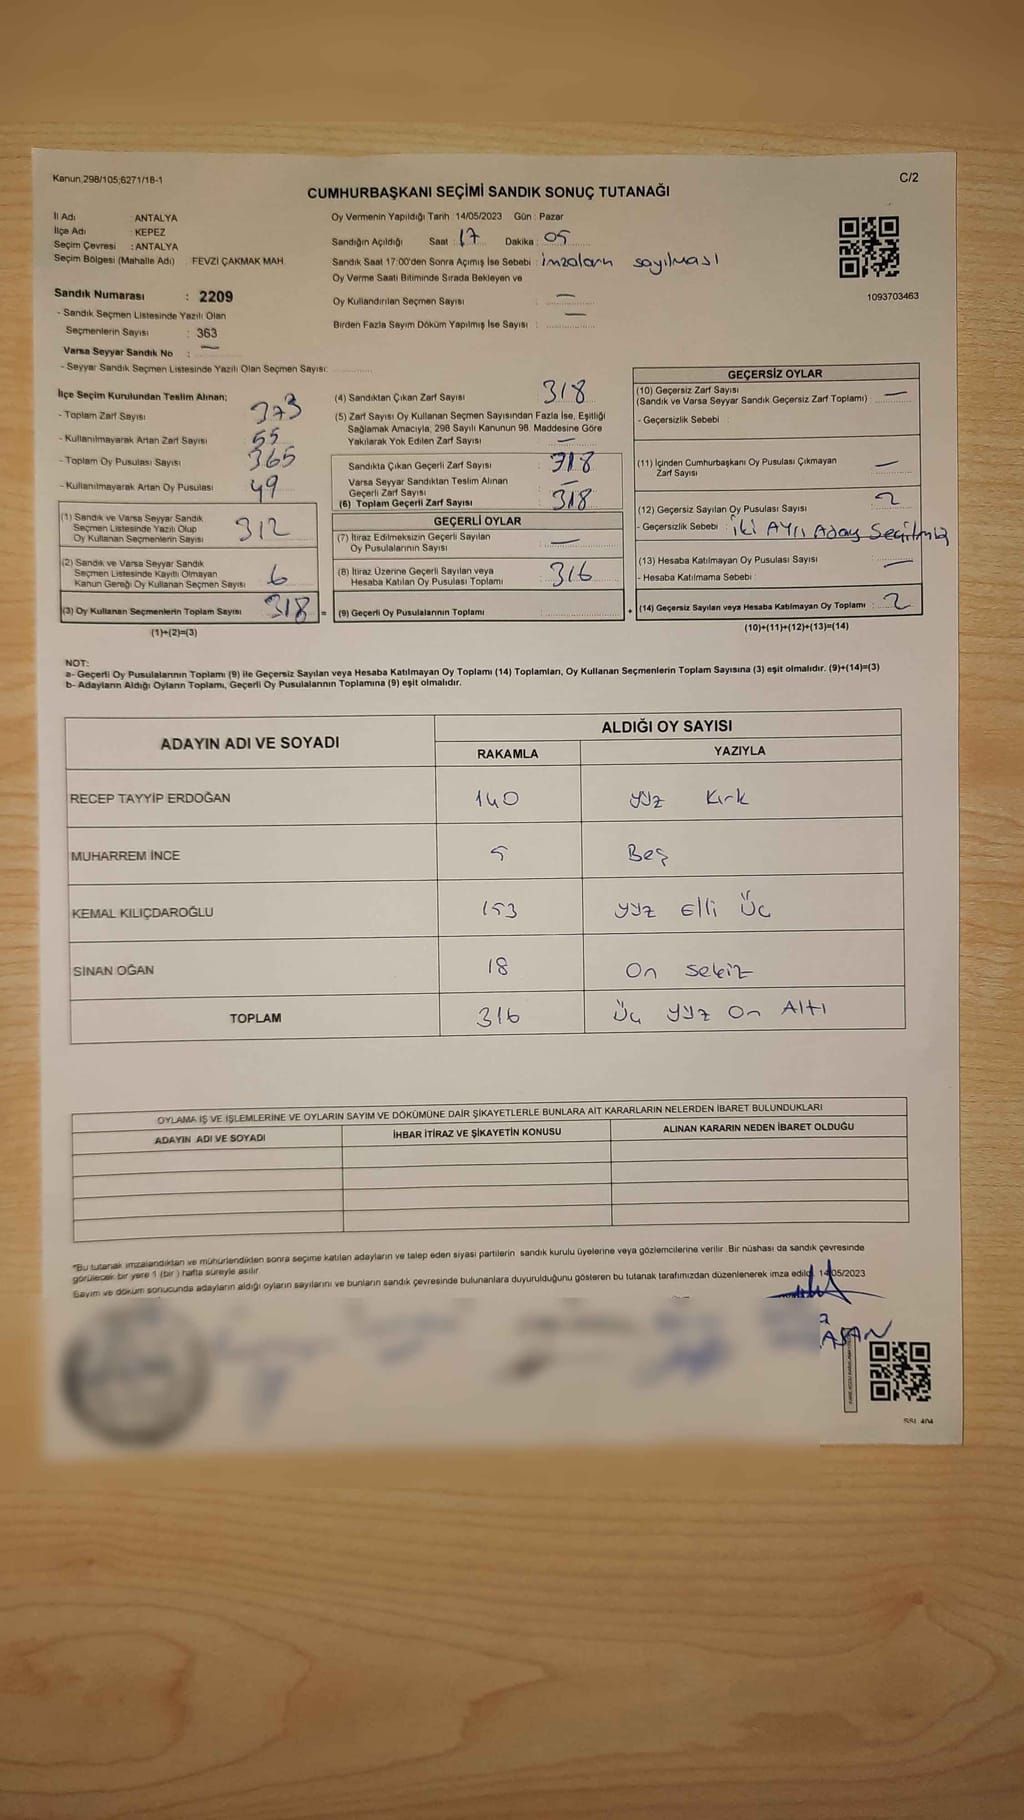 Kanun:298/105;6271/18-1
C/2
CUMHURBAŞKANI SEÇİMİ SANDIK SONUÇ TUTANAĞI
İl Adı : ANTALYA
İlçe Adı : KEPEZ
Seçim Çevresi : ANTALYA
Seçim Bölgesi (Mahalle Adı) : FEVZİ ÇAKMAK MAH.
Sandık Numarası : 2209
- Sandık Seçmen Listesinde Yazılı Olan
Seçmenlerin Sayısı : 363
Varsa Seyyar Sandık No : —
- Seyyar Sandık Seçmen Listesinde Yazılı Olan Seçmen Sayısı:
Oy Vermenin Yapıldığı Tarih : 14/05/2023 Gün : Pazar
Sandığın Açıldığı Saat : 17 Dakika : 05
Sandık Saat 17:00'den Sonra Açılmış İse Sebebi : imzaların sayılması
Oy Verme Saati Bitiminde Sırada Bekleyen ve
Oy Kullandırılan Seçmen Sayısı : —
Birden Fazla Sayım Döküm Yapılmış İse Sayısı : —
1093703463
İlçe Seçim Kurulundan Teslim Alınan;
- Toplam Zarf Sayısı : 373
- Kullanılmayarak Artan Zarf Sayısı : 55
- Toplam Oy Pusulası Sayısı : 365
- Kullanılmayarak Artan Oy Pusulası : 49
(1) Sandık ve Varsa Seyyar Sandık
Seçmen Listesinde Yazılı Olup
Oy Kullanan Seçmenlerin Sayısı : 312
(2) Sandık ve Varsa Seyyar Sandık
Seçmen Listesinde Kayıtlı Olmayan
Kanun Gereği Oy Kullanan Seçmen Sayısı : 6
(3) Oy Kullanan Seçmenlerin Toplam Sayısı : 318
(1)+(2)=(3)
(4) Sandıktan Çıkan Zarf Sayısı : 318
(5) Zarf Sayısı Oy Kullanan Seçmen Sayısından Fazla İse, Eşitliği
Sağlamak Amacıyla, 298 Sayılı Kanunun 98. Maddesine Göre
Yakılarak Yok Edilen Zarf Sayısı : —
Sandıkta Çıkan Geçerli Zarf Sayısı : 318
Varsa Seyyar Sandıktan Teslim Alınan
Geçerli Zarf Sayısı : —
(6) Toplam Geçerli Zarf Sayısı : 318
GEÇERLİ OYLAR
(7) İtiraz Edilmeksizin Geçerli Sayılan
Oy Pusulalarının Sayısı : —
(8) İtiraz Üzerine Geçerli Sayılan veya
Hesaba Katılan Oy Pusulası Toplamı : 316
= (9) Geçerli Oy Pusulalarının Toplamı :
GEÇERSİZ OYLAR
(10) Geçersiz Zarf Sayısı
(Sandık ve Varsa Seyyar Sandık Geçersiz Zarf Toplamı) : —
- Geçersizlik Sebebi :
(11) İçinden Cumhurbaşkanı Oy Pusulası Çıkmayan
Zarf Sayısı : —
(12) Geçersiz Sayılan Oy Pusulası Sayısı : 2
- Geçersizlik Sebebi : iki Ayrı Aday Seçilmiş
(13) Hesaba Katılmayan Oy Pusulası Sayısı : —
- Hesaba Katılmama Sebebi :
+ (14) Geçersiz Sayılan veya Hesaba Katılmayan Oy Toplamı : 2
(10)+(11)+(12)+(13)=(14)
NOT:
a- Geçerli Oy Pusulalarının Toplamı (9) ile Geçersiz Sayılan veya Hesaba Katılmayan Oy Toplamı (14) Toplamları, Oy Kullanan Seçmenlerin Toplam Sayısına (3) eşit olmalıdır. (9)+(14)=(3)
b- Adayların Aldığı Oyların Toplamı, Geçerli Oy Pusulalarının Toplamına (9) eşit olmalıdır.
ADAYIN ADI VE SOYADI ALDIĞI OY SAYISI
RAKAMLA YAZIYLA
RECEP TAYYİP ERDOĞAN 140 yüz Kırk
MUHARREM İNCE 5 Beş
KEMAL KILIÇDAROĞLU 153 yüz Elli Üç
SİNAN OĞAN 18 On sekiz
TOPLAM 316 Üç yüz On Altı
OYLAMA İŞ VE İŞLEMLERİNE VE OYLARIN SAYIM VE DÖKÜMÜNE DAİR ŞİKAYETLERLE BUNLARA AİT KARARLARIN NELERDEN İBARET BULUNDUKLARI
ADAYIN ADI VE SOYADI İHBAR İTİRAZ VE ŞİKAYETİN KONUSU ALINAN KARARIN NEDEN İBARET OLDUĞU
*Bu tutanak imzalandıktan ve mühürlendikten sonra seçime katılan adayların ve talep eden siyasi partilerin sandık kurulu üyelerine veya gözlemcilerine verilir. Bir nüshası da sandık çevresinde
görülecek bir yere 1 (bir) hafta süreyle asılır.
Sayım ve döküm sonucunda adayların aldığı oyların sayılarını ve bunların sandık çevresinde bulunanlara duyurulduğunu gösteren bu tutanak tarafımızdan düzenlenerek imza edildi. 14/05/2023